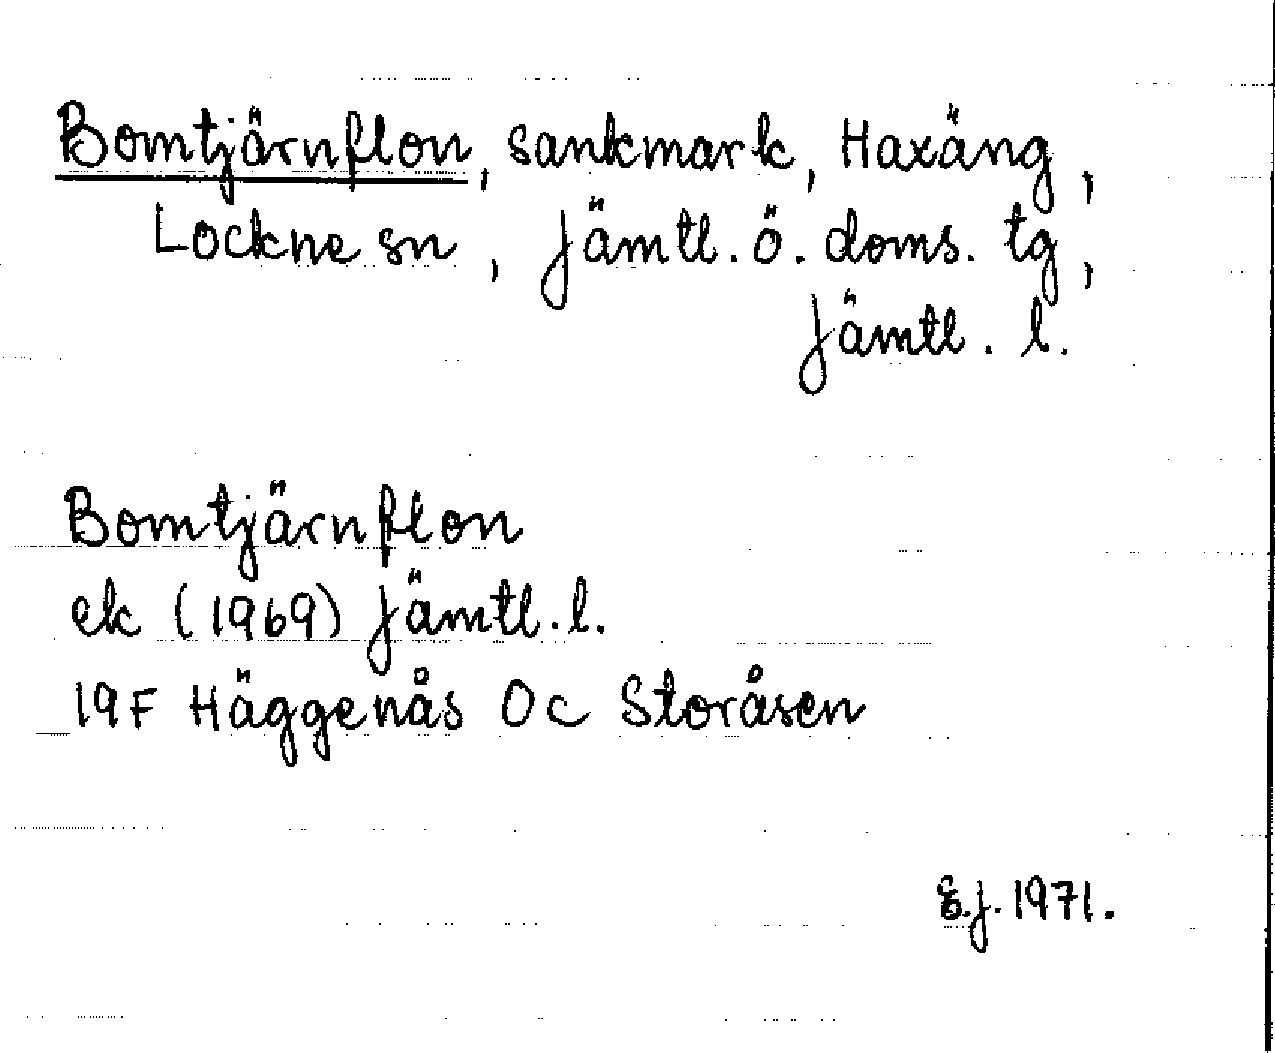 Bomtjärnflon, sankmark, Haxäng,
Lockne sn, Jämtl. ö. doms. tg,
Jämtl. l.
Bomtjärnflon
ek (1969) Jämtl. l.
19F Häggenås 0c Storåsen
E.J. 1971.